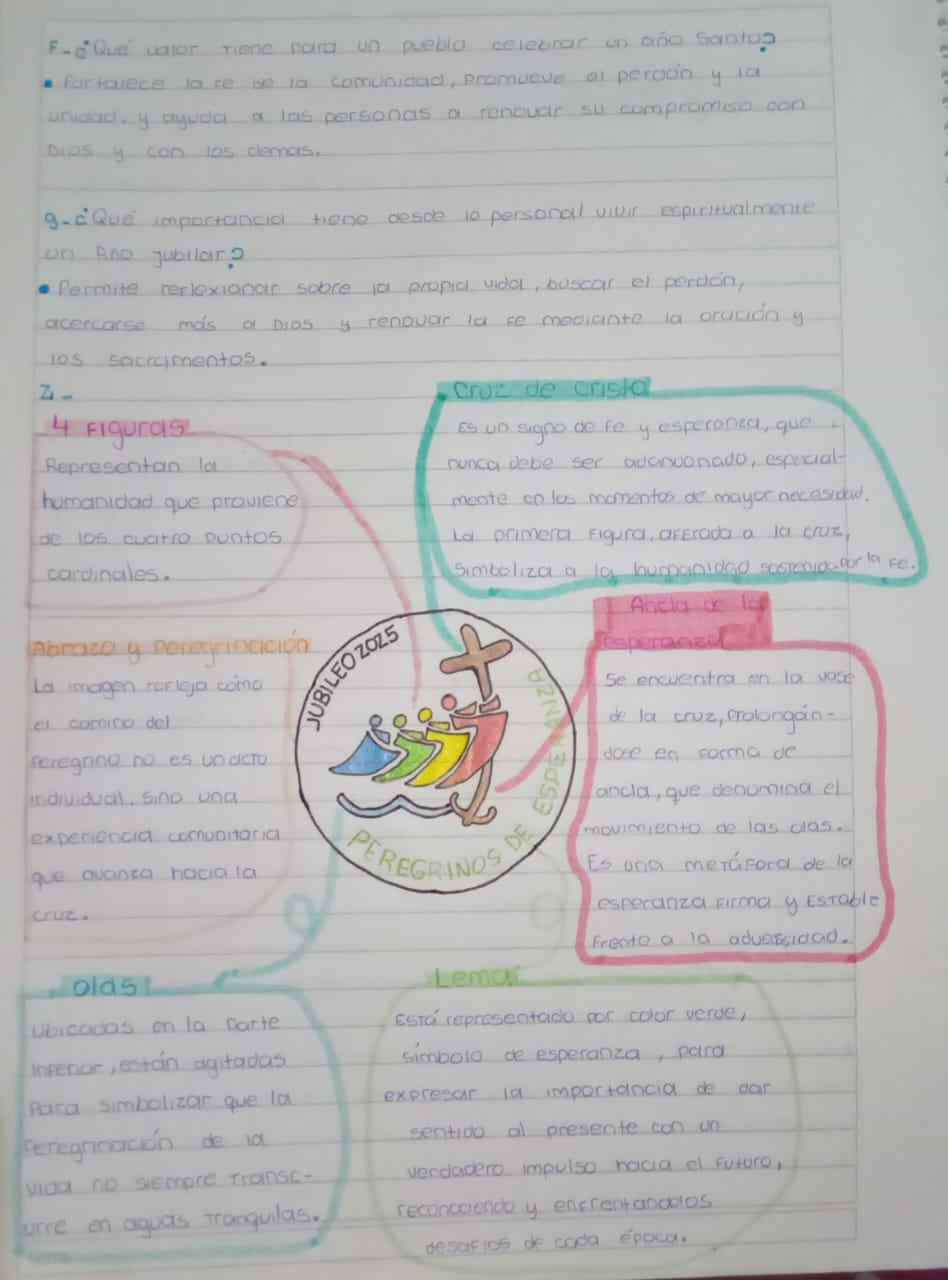 F-¿Qué valor tiene para un pueblo celebrar un año Santo?
• Fortalece la fe de la comunidad, promueve al perdón y la
unidad, y ayuda a las personas a renovar su compromiso con
Dios y con los demas.
g-¿Qué importancia tiene desde lo personal vivir espiritualmente
un Año jubilar?
• Permite reflexionar sobre la propia vida, buscar el perdón,
acercarse más a Dios y renovar la fe mediante la oración y
los sacramentos.
2-
4 Figuras
Representan la
humanidad que proviene
de los cuatro puntos
cardinales.
Cruz de cristo
Es un signo de Fe y esperanza, que
nunca debe ser abandonado, especial-
mente en los momentos de mayor necesidad.
La primera figura, aferada a la cruz,
simboliza a la humanidad sostenida por la Fe.
Abrazo y peregrinación
La imagen refleja cómo
el camino del
peregrino no es un acto
individual, sino una
experiencia comunitaria
que avanza hacia la
cruz.
JUBILEO 2025
PEREGRINOS DE ESPERANZA
Ancla de la
esperanza
Se encuentra en la vase
de la cruz, prolongán-
dose en forma de
ancla, que denomina el
movimiento de las olas.
Es una metáfora de la
esperanza Firma y ESTable
Frente a la
olas
Ubicadas en la parte
inferior, están agitadas
Para simbolizar que la
Peregrinación de la
vida no siempre Transc-
urre en aguas Tranquilas.
Lema
Está representado por color verde,
símbolo de esperanza, para
expresar la importancia de dar
sentido al presente con un
verdadero impulso hacia el Futuro,
reconociendo y enfrentandolos
desafios de cada época.